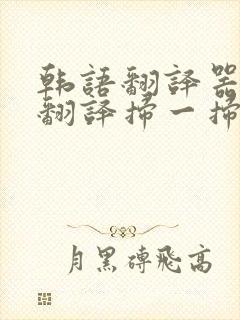 韩語翻譯器
翻譯掃一掃
月黑磚飛高